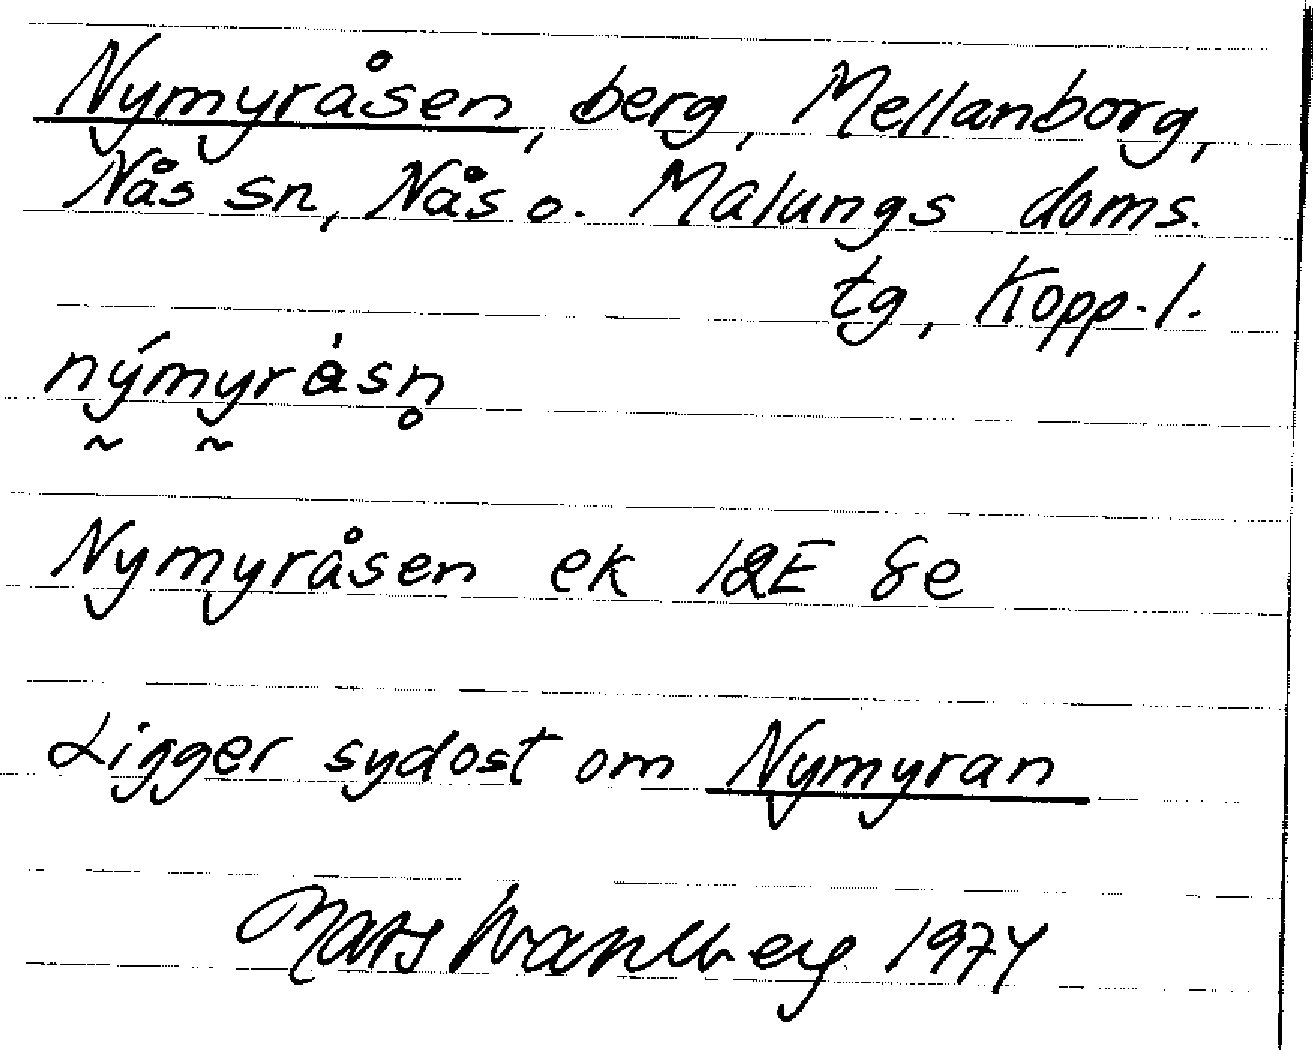 Nymyråsen, berg, Mellanborg,
Nås sn, Nås o. Malungs doms.
tg, Kopp. l.
nýmyrȧsn̥
~ ~
Nymyråsen ek 12E 8e
Ligger sydost om Nymyran
Mats Wahlberg 1974